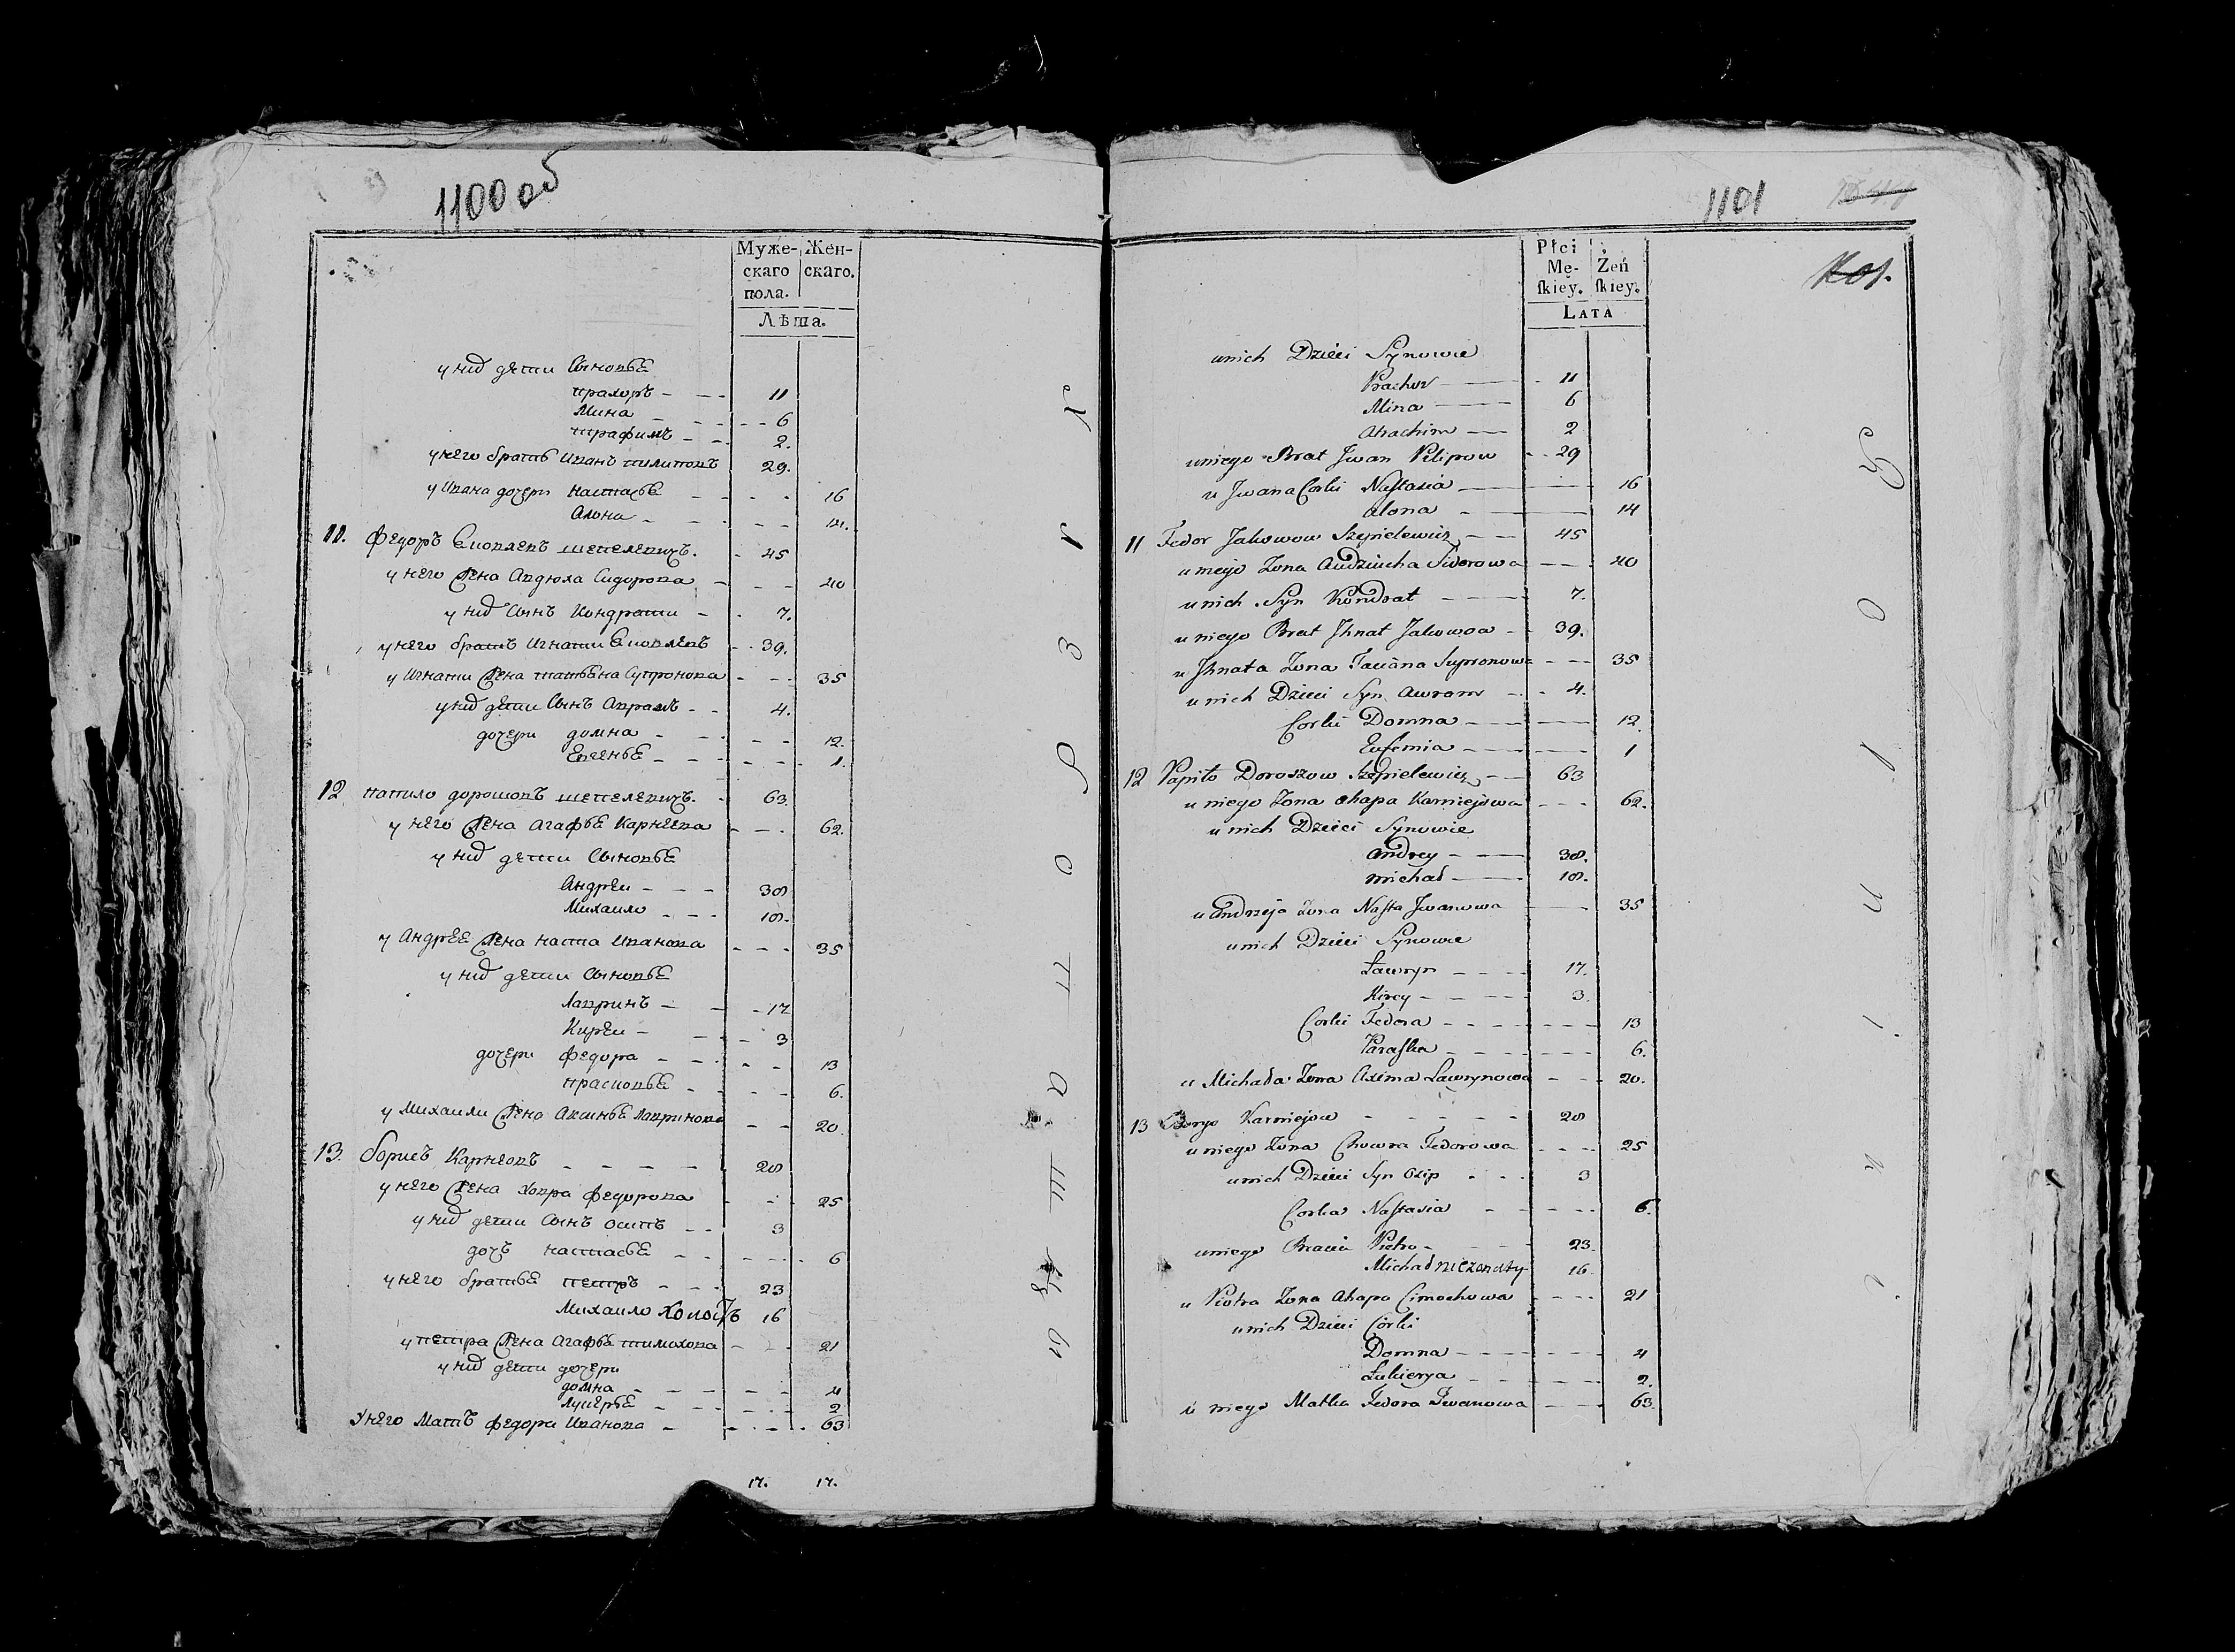 1100 об
Муже- Жен-
скаго скаго.
пола.
Лѣта.
у них дети Сыновье
прахоръ - - - 11
Мина - - - 6
трафимъ - - 2.
у него братъ Иванъ пилиповъ 29.
у Ивана дочери настасье - - - 16
Алона - - - 14.
11. Федоръ Яковлевъ шепелевичъ. - 45
у него жена Авдюха Сидорова - - - 40
у них Сынъ Кондрати - - 7.
у него братъ Игнати Яковлевъ - - 39.
у Игнати жена татьяна Супронова - - - 35
у них дети Сынъ Аврамъ - - 4.
дочери домна - - - 12.
- - - 1.
12 папило дорошовъ шепелевичъ. - 63.
у него жена Агафье Карнеева - - - 62.
у них дети Сыновье
Андрей - - - 38
Михаило - - - 18.
у Андрея жена наста Иванова - - - 35
у них дети сыновье
Лавринъ - - - 17
Кирей - - - 3
дочери федора - - - 13
прасковье - - - 6.
у Михаили жена Аксинье Лавринова - - 20
13. борисъ Карнеевъ - - - - 28
у него жена ховра федорова - - - 25
у них дети Сынъ осипъ - - 3
дочъ настасье - - - 6
у него братье петръ - - - 23
Михаило холостъ 16
у петра жена Агафье тимохова - - - 21
у них дети дочери
домна - - - 4
Лукерье - - - 2
У него Матъ федора Иванова - - - 63
17. 17.
1101
Płci Żeń
Mę- skiey.
skiey.
LATA
u nich Dzieci Synowie
Prachor - 11
Mina - 6
Atrachim - 2
u niego Brat Jwan Pilipow - 29
u Jwana Corki Nastasia - 16
Alona - 14
11 Fedor Jakowow Szepielewicz - 45
u niego Żona Audziucha Sidorowa - 40
u nich Syn Kondrat - 7.
u niego Brat Jhnat Jakowow - 39.
u Jhnata Żona Taciana Supronowa - 35
u nich Dzieci Syn Awram - 4.
Corki Domna - 12.
Eufemia - 1
12 Papiło Doroszow Szepielewicz - 63
u niego Żona Ahapa Karniejowa - 62.
u nich Dzieci Synowie
Andrey - 38.
Michał - 18.
u Andrzeja Żona Nasta Jwanowa - 35
u nich Dzieci Synowie
Ławryn - 17.
Kirey - 3.
Corki Fedora - 13
Paraska - 6.
u Michała Żona Axima Ławrynowa - 20.
13 Borys Karniejow - 28
u niego Żona Chowra Fedorowa - 25
u nich Dzieci Syn Osip - 3
Corka Nastasia - 6.
u niego Bracia Pietro - 23.
Michał nieżonaty 16.
u Piotra Żona Ahapa Cimochowa - 21
u nich Dzieci Córki
Domna - 4
Łukierya - 2.
u niego Matka Fedora Iwanowa - 63.